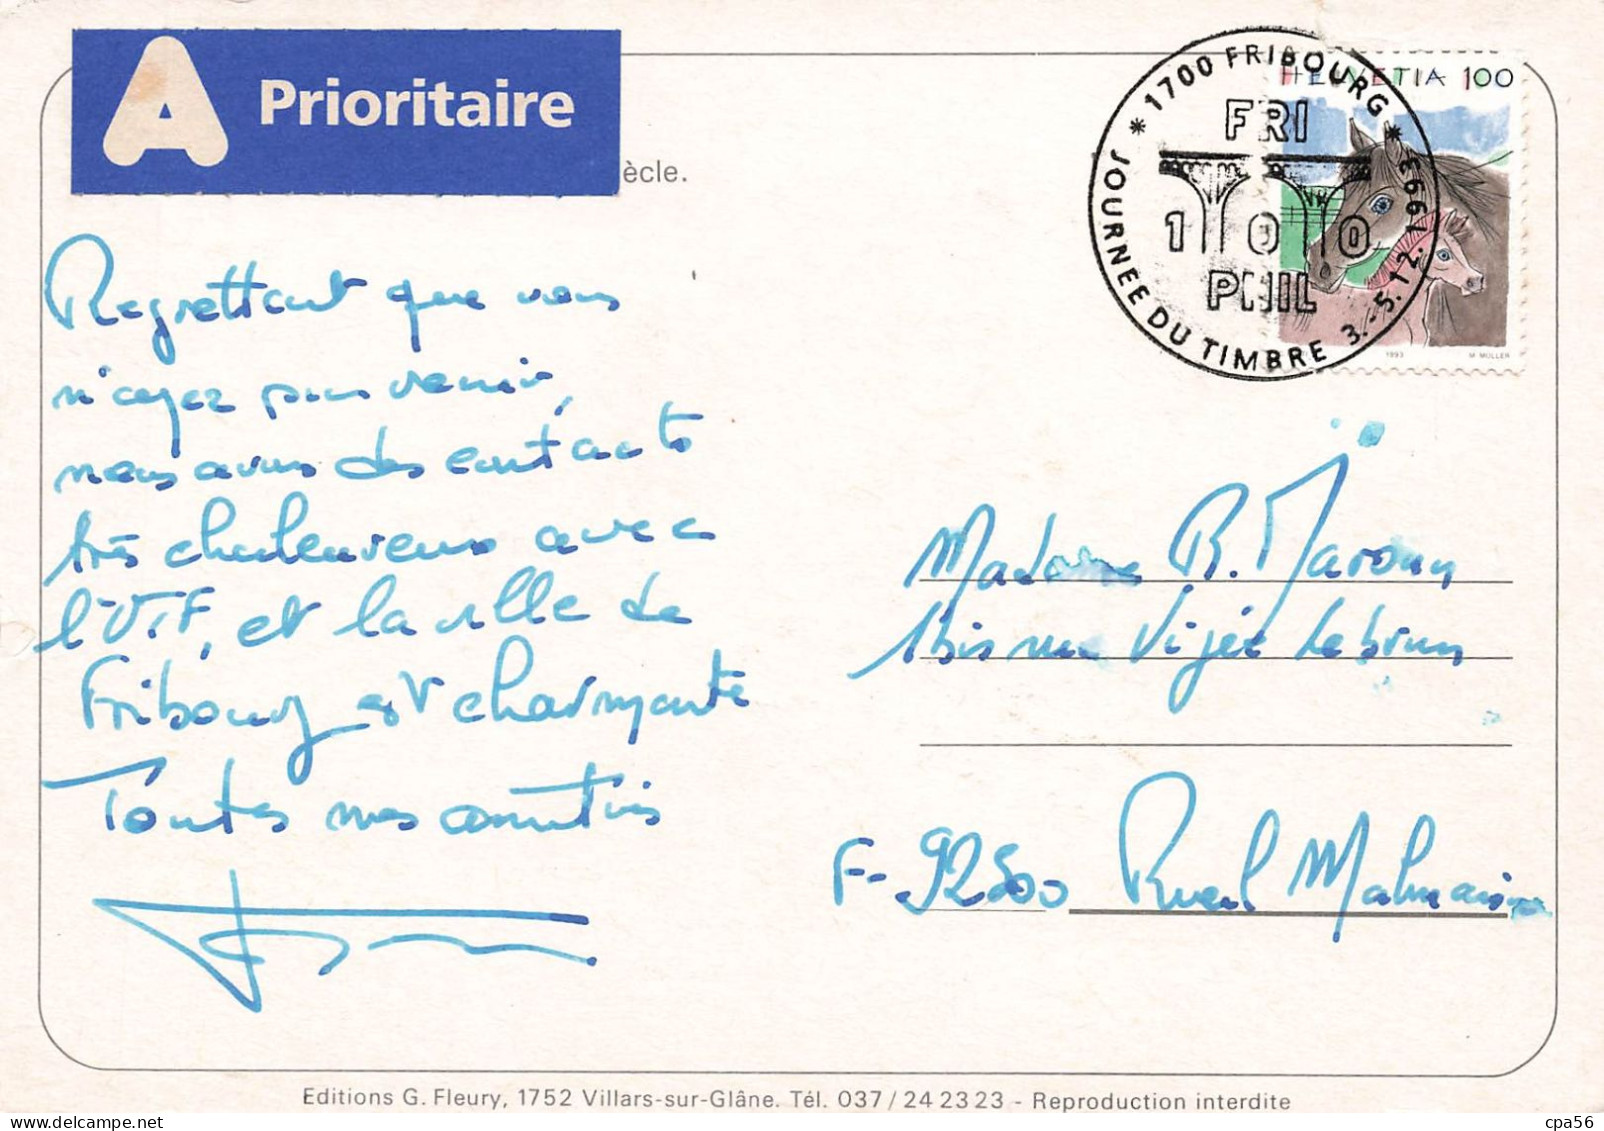 A Prioritaire
ècle.
Regrettant que vous
n'ayez pas venir,
nous avons des contacts
très chaleureux avec
l'OTF, et la ville de
Fribourg est charmante
Toutes mes amitiés
* 1700 FRIBOURG *
JOURNEE DU TIMBRE 3.-5.12.1993
FRI
100
PHIL
HELVETIA 100
1993 M MÜLLER
Madame R. Maroun
1bis rue Vigée Lebrun
F-92500 Rueil Malmaison
Editions G. Fleury, 1752 Villars-sur-Glâne. Tél. 037/24 23 23 - Reproduction interdite
cpa56